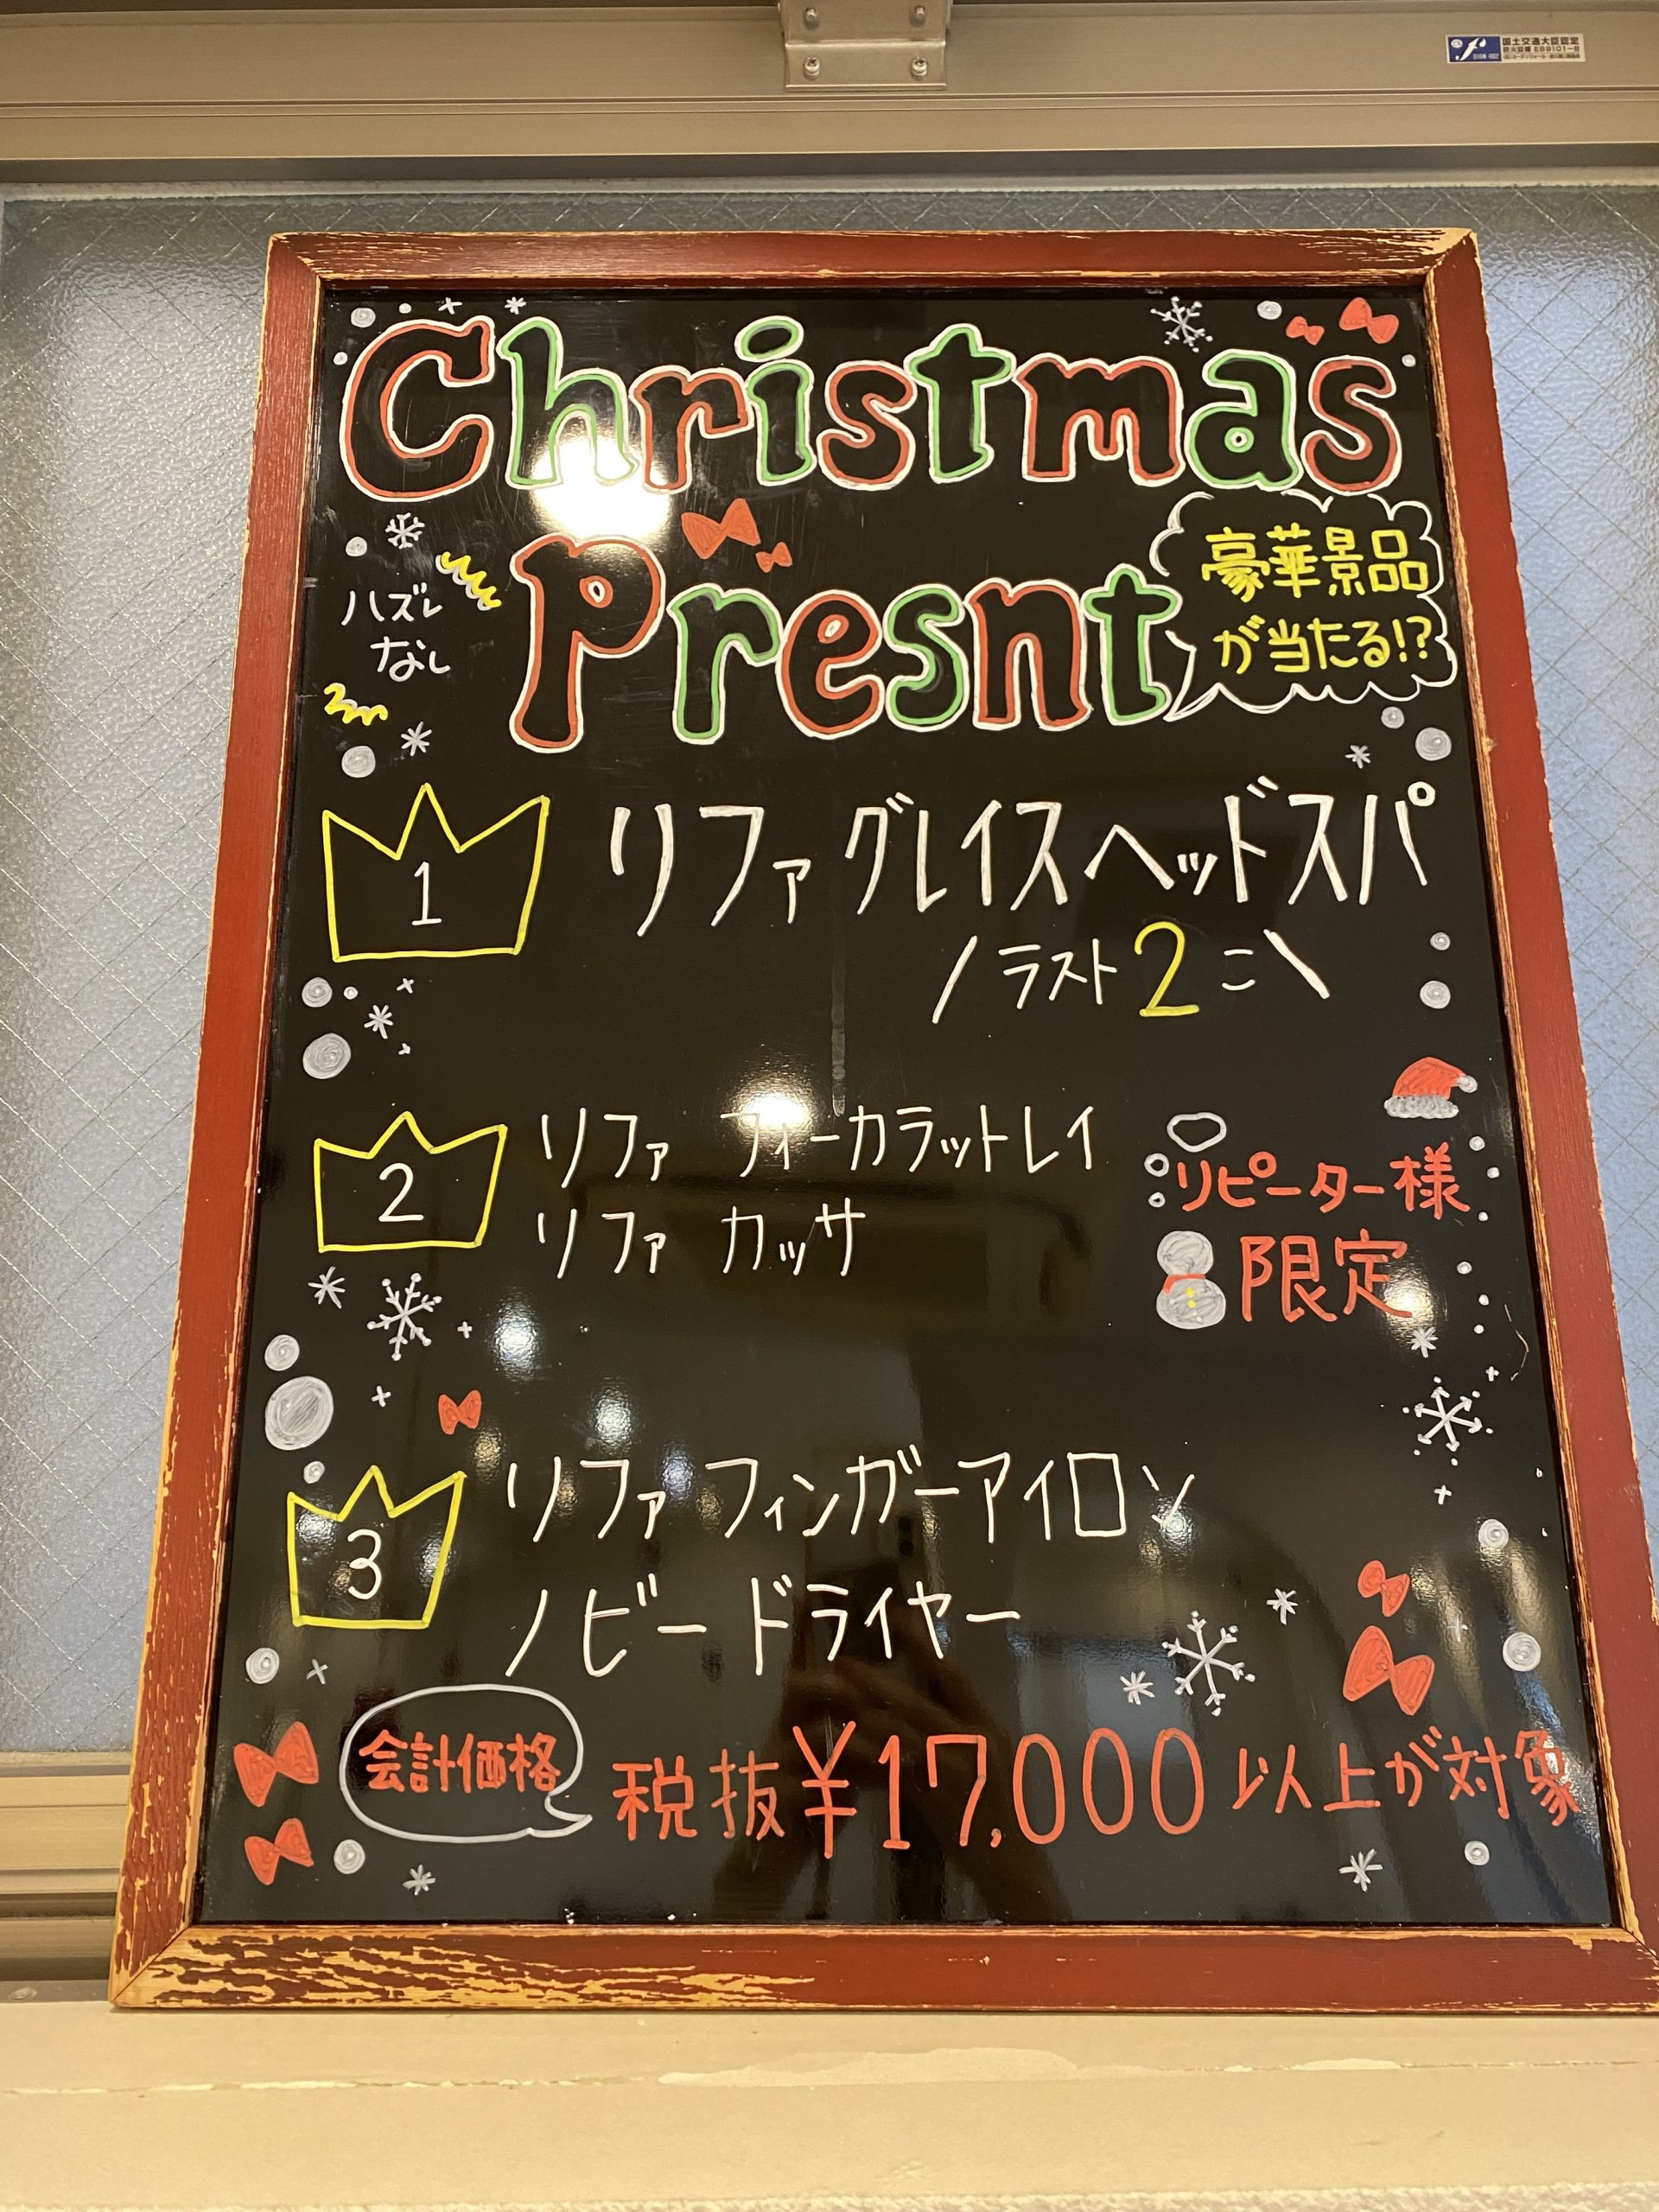 国土交通大臣認定
防火設備 EB9101-B
Christmas
Presnt
豪華景品
が当たる!?
ハズレ
なし
1
リファグレイスヘッドスパ
ラスト2こ
2
リファ フィーカラットレイ
リファ カッサ
リピーター様
限定
3
リファ フィンガーアイロン
ノビードライヤー
会計価格
税抜¥17,000以上が対象